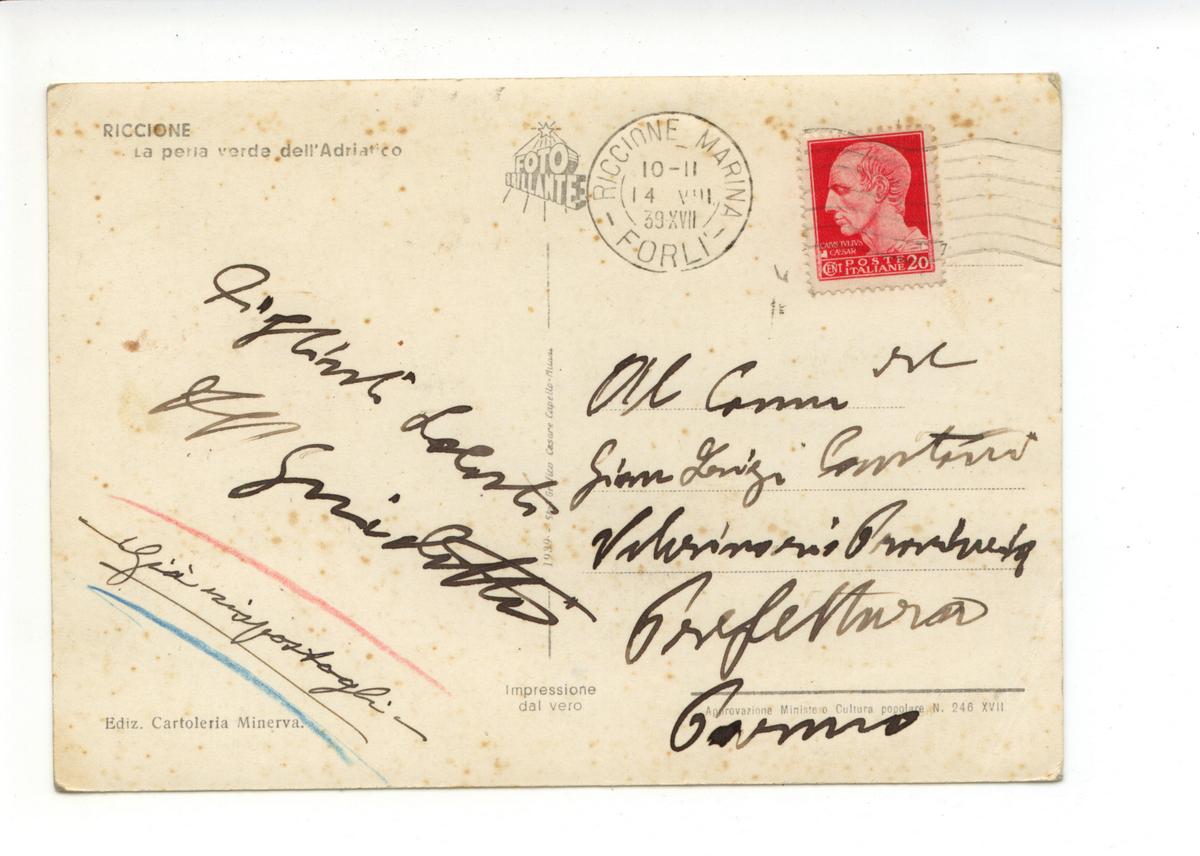 RICCIONE
La perla verde dell'Adriatico
FOTO
BRILLANTE
RICCIONE MARINA
10-11
14 VIII
39 XVII
- FORLI' -
CAIVS IVLIVS
CAESAR
CENT POSTE
ITALIANE 20
Saluti
Aff
Al Comm
Gian Luigi
Veterinario Provincia
Prefettura
Parma
Già rispostogli
1939 - Grafico Cesare Capello - Milano
Impressione
dal vero
Ediz. Cartoleria Minerva.
Approvazione Ministero Cultura popolare N. 246 XVII